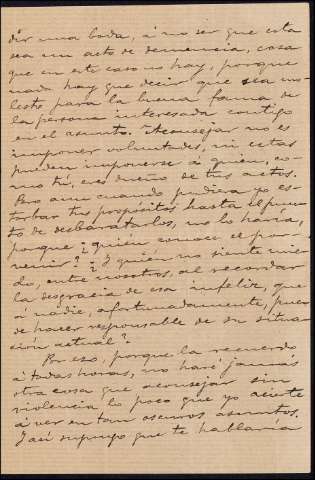 dir una boda, á no ser que esta
sea un acto de demencia, cosa
que en este caso no hay, porque
nada hay que decir que sea mo-
lesto para la buena fama de
la persona interesada contigo
en el asunto. Aconsejar no es
imponer voluntades, ni estas
pueden imponerse á quien, co-
mo tú, eres dueño de tus actos.
Pero aun cuando pudiera yo es-
torbar tus propósitos hasta el pun-
to de desbaratarlos, no lo haría,
porque ¿quién conoce el por-
venir? ¿Y quién no siente mie-
do, entre nosotros, al recordar
la desgracia de esa infeliz, que
á nadie, afortunadamente, pue-
de hacer responsable de su situa-
ción actual?
Por eso, porque la recuerdo
á todas horas, no haré jamás
otra cosa que aconsejar sin
violencia lo poco que yo acierte
á ver en tan oscuros asuntos.
Y así supuse que te hablaría